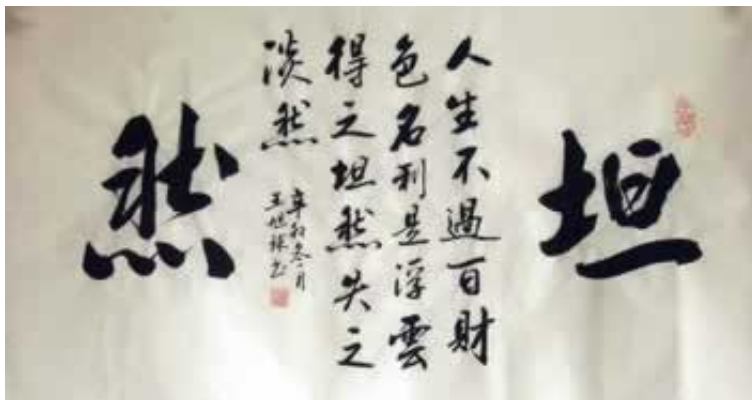 坦
人生不過百財
色名利是浮雲
得之坦然失之
淡然
辛卯冬月
王旭
然